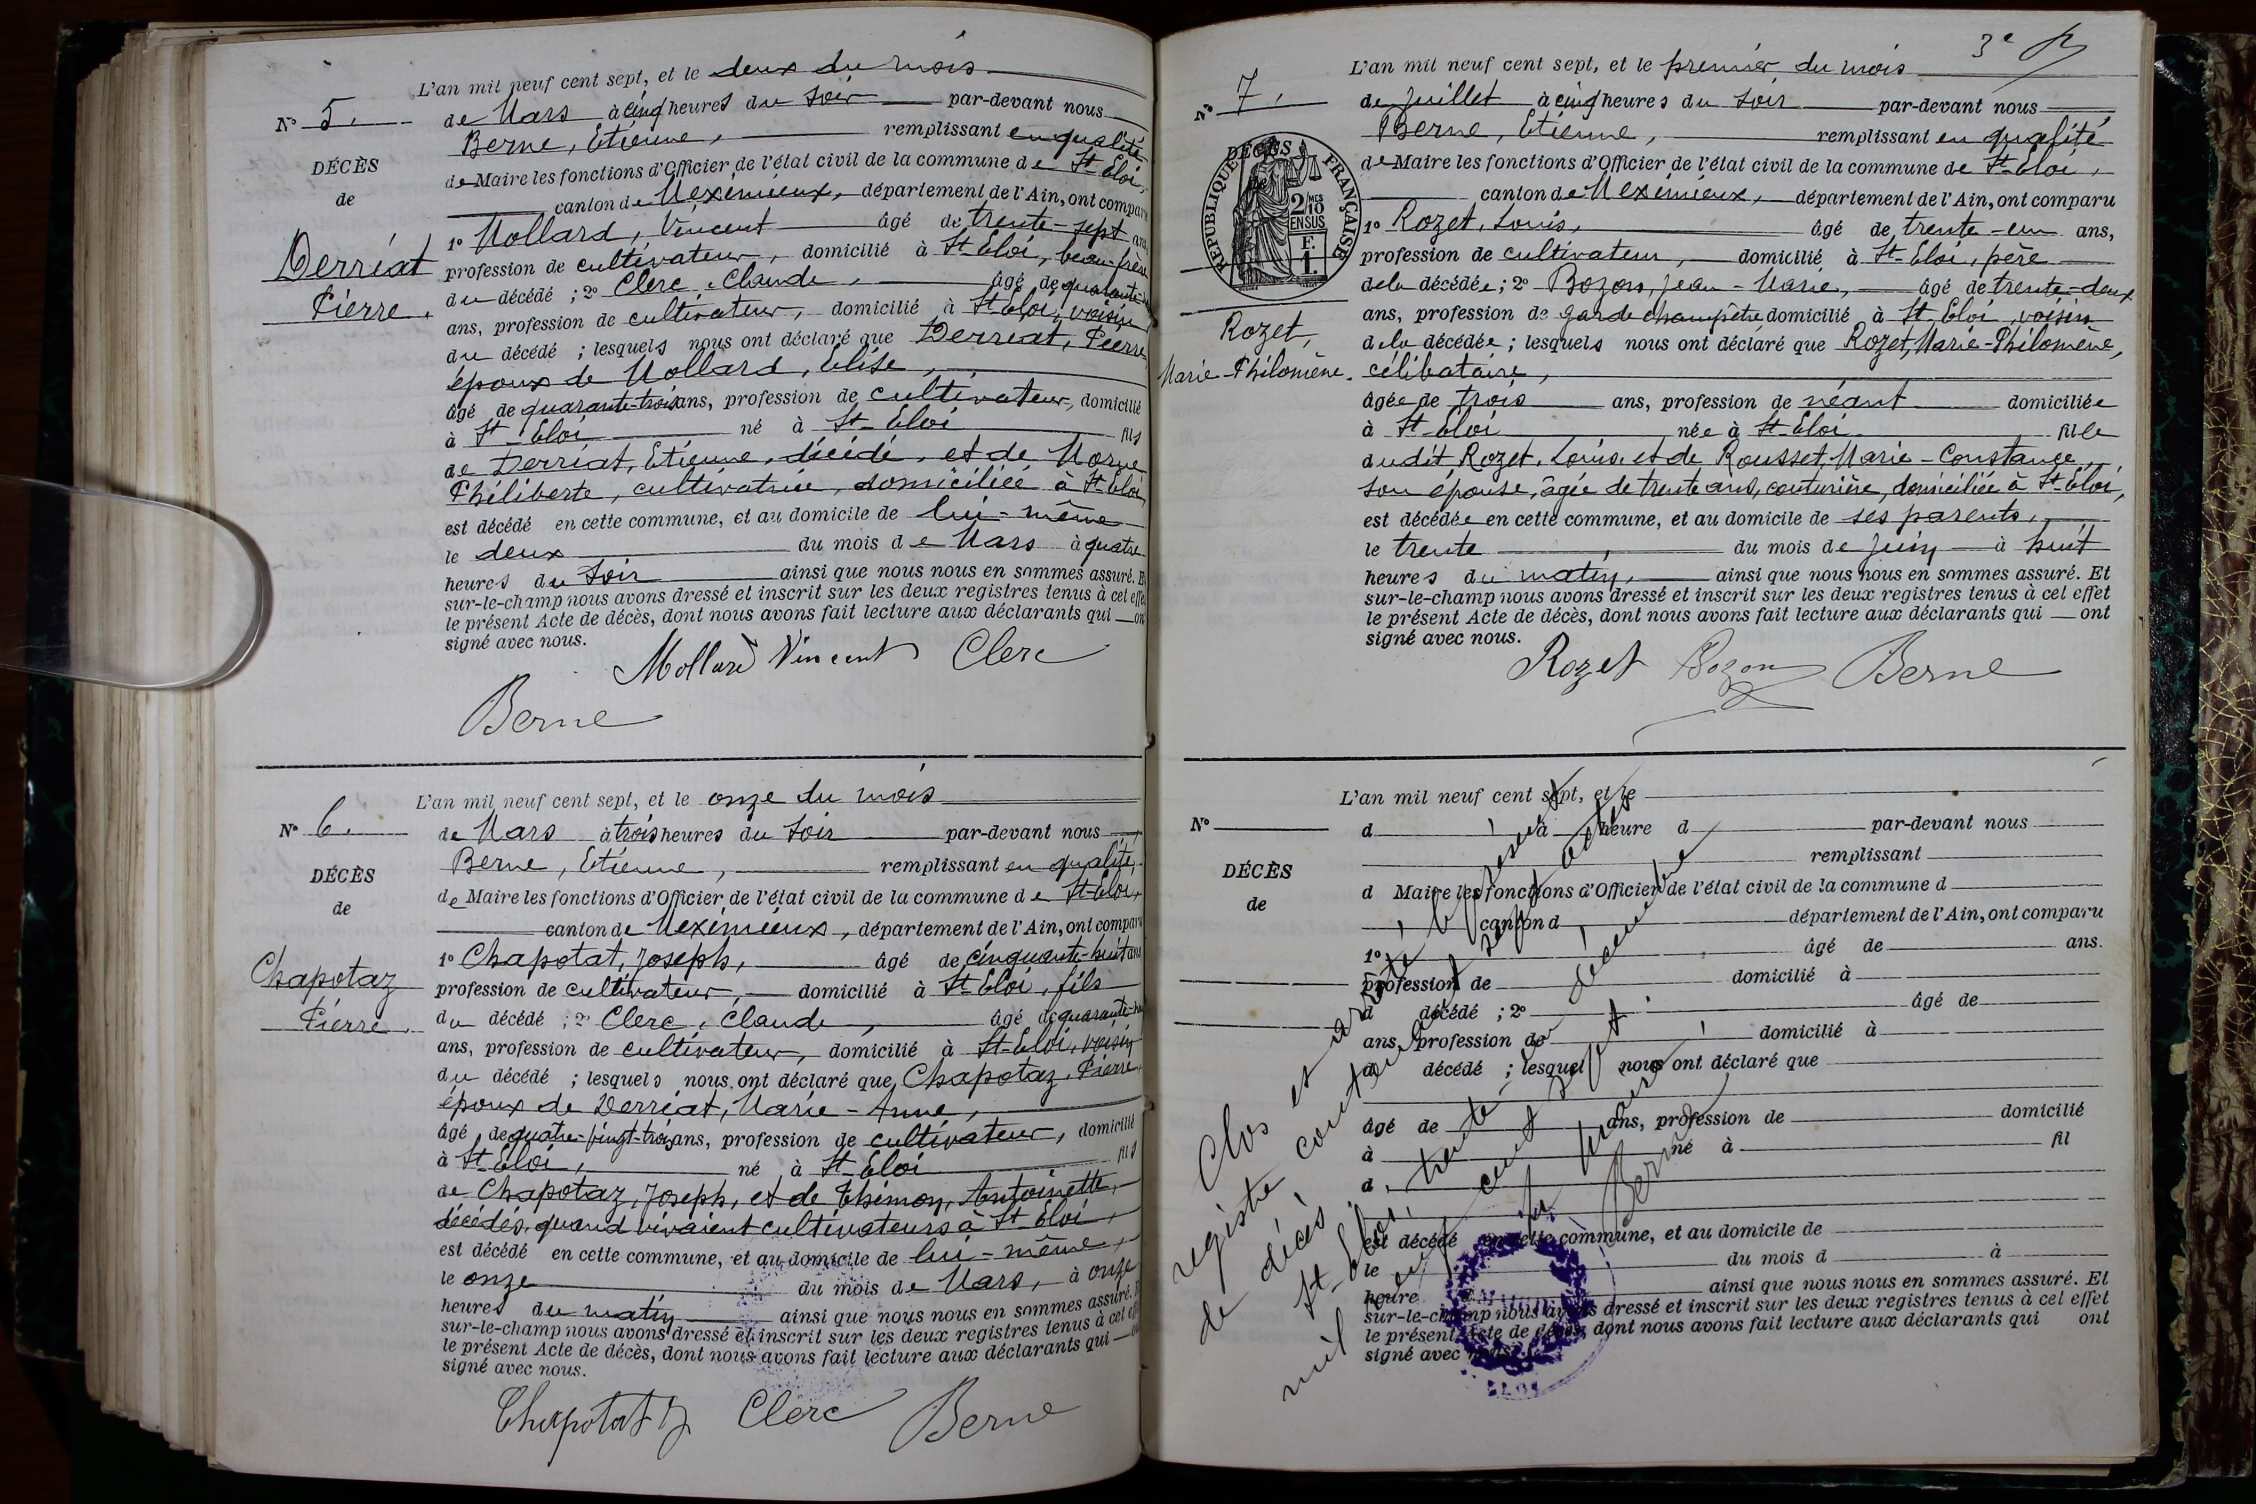 L'an mil neuf cent sept, et le deux du mois
N° 5.
de Mars à cinq heures du soir par-devant nous
Berne, Etienne, remplissant en qualité
DÉCÈS
de Maire les fonctions d'Officier de l'état civil de la commune de St-Eloi,
de
canton de Meximieux, département de l'Ain, ont comparu
1° Mollard, Vincent âgé de trente-sept ans,
Derriat
Pierre.
profession de cultivateur, domicilié à St-Eloi, beau-frère
du décédé ; 2° Clerc, Claude, âgé de quarante
ans, profession de cultivateur, domicilié à St-Eloi, voisin
du décédé ; lesquels nous ont déclaré que Derriat, Pierre
époux de Mollard, Elise,
âgé de quarante-trois ans, profession de cultivateur, domicilié
à St-Eloi né à St-Eloi fils
de Derriat, Etienne, décédé, et de Morne
Philiberte, cultivatrice, domiciliée à St-Eloi,
est décédé en cette commune, et au domicile de lui-même
le deux du mois de Mars à quatre
heures du soir ainsi que nous nous en sommes assuré. Et
sur-le-champ nous avons dressé et inscrit sur les deux registres tenus à cet effet
le présent Acte de décès, dont nous avons fait lecture aux déclarants qui ont
signé avec nous.
Mollard Vincent Clerc
Berne
L'an mil neuf cent sept, et le onze du mois
N° 6.
de Mars à trois heures du soir par-devant nous
Berne, Etienne, remplissant en qualité
DÉCÈS
de Maire les fonctions d'Officier de l'état civil de la commune de St-Eloi,
de
canton de Meximieux, département de l'Ain, ont comparu
1° Chapotat, Joseph, âgé de cinquante-huit ans
Chapotaz
Pierre.
profession de cultivateur, domicilié à St-Eloi, fils
du décédé ; 2° Clerc, Claude, âgé de quarante
ans, profession de cultivateur, domicilié à St-Eloi, voisin
du décédé ; lesquels nous ont déclaré que Chapotaz, Pierre,
époux de Derriat, Marie-Anne,
âgé de quatre-vingt-trois ans, profession de cultivateur, domicilié
à St-Eloi, né à St-Eloi fils
de Chapotaz, Joseph, et de Thimon, Antoinette,
décédés, quand vivaient cultivateurs à St-Eloi,
est décédé en cette commune, et au domicile de lui-même,
le onze du mois de Mars, à onze
heures du matin ainsi que nous nous en sommes assuré. Et
sur-le-champ nous avons dressé et inscrit sur les deux registres tenus à cet effet
le présent Acte de décès, dont nous avons fait lecture aux déclarants qui ont
signé avec nous.
Chapotat Clerc Berne
3e
L'an mil neuf cent sept, et le premier du mois
N° 7.
de Juillet à cinq heures du soir par-devant nous
Berne, Etienne, remplissant en qualité
DÉCÈS
de
RÉPUBLIQUE FRANÇAISE
2 MES
10
EN SUS
F.
1.
de Maire les fonctions d'Officier de l'état civil de la commune de St-Eloi,
canton de Meximieux, département de l'Ain, ont comparu
1° Rozet, Louis, âgé de trente-un ans,
profession de cultivateur, domicilié à St-Eloi, père
de la décédée ; 2° Bozon, Jean-Marie, âgé de trente-deux
ans, profession de garde champêtre domicilié à St-Eloi, voisin
Rozet,
Marie-Philomène.
de la décédée ; lesquels nous ont déclaré que Rozet, Marie-Philomène,
célibataire,
âgée de trois ans, profession de néant domiciliée
à St-Eloi née à St-Eloi fille
dudit Rozet, Louis, et de Rousset, Marie-Constance
son épouse, âgée de trente ans, couturière, domiciliée à St-Eloi,
est décédée en cette commune, et au domicile de ses parents,
le trente du mois de Juin à huit
heures du matin, ainsi que nous nous en sommes assuré. Et
sur-le-champ nous avons dressé et inscrit sur les deux registres tenus à cet effet
le présent Acte de décès, dont nous avons fait lecture aux déclarants qui ont
signé avec nous.
Rozet Bozon Berne
L'an mil neuf cent sept, et le
N°
d à heure d par-devant nous
remplissant
DÉCÈS
d Maire les fonctions d'Officier de l'état civil de la commune d
de
canton d département de l'Ain, ont comparu
1° âgé de ans.
profession de domicilié à
d décédé ; 2° âgé de
ans, profession de domicilié à
d décédé ; lesquel nous ont déclaré que
âgé de ans, profession de domicilié
à né à fil
d
est décédé en cette commune, et au domicile de
le du mois d à
heure d ainsi que nous nous en sommes assuré. Et
sur-le-champ nous avons dressé et inscrit sur les deux registres tenus à cet effet
le présent Acte de décès, dont nous avons fait lecture aux déclarants qui ont
signé avec nous.
Clos et arrêté le présent
registre contenant sept actes
de décès
St-Eloi, trente-un décembre
mil neuf cent sept.
Le Maire
Berne